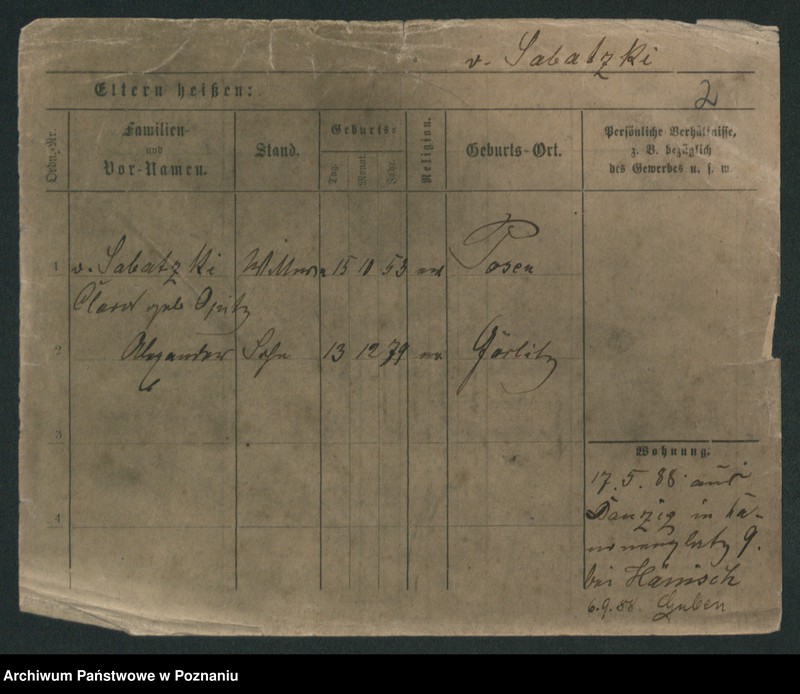 v. Sabatzki
Eltern heißen:
2
Ordn.-Nr.
Familien-
und
Vor-Namen.
Stand.
Geburts-
Tag.
Monat.
Jahr.
Religion.
Geburts-Ort.
Persönliche Verhältnisse,
z. B. bezüglich
des Gewerbes u. s. w.
1 v. Sabatzki Wittwe 15 10 53 Posen
Clara geb. Opitz
2 Alexander Sohn 13 12 79 Görlitz
3
4
Wohnung.
17. 5. 88. aus
Danzig in Ka-
nonenplatz 9.
bei Hänisch
6. 9. 88. Guben
Archiwum Państwowe w Poznaniu